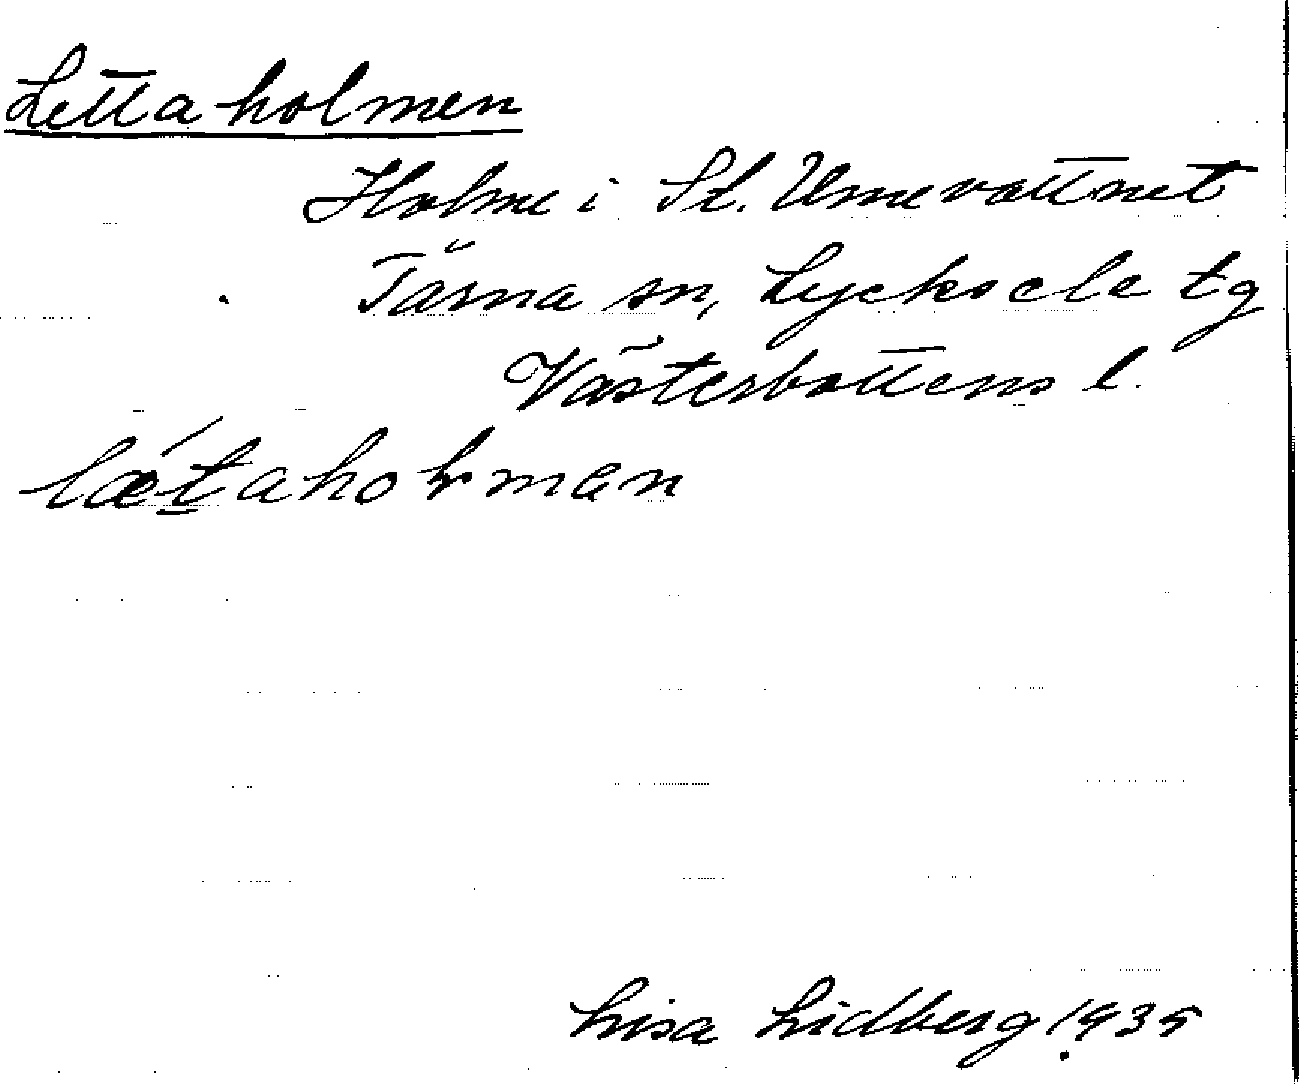 Lettaholmen
Holme i St. Umevattnet
Tärna sn, Lycksele tg
Västerbottens l.
læ´t̲aholman
Lisa Lidberg 1935